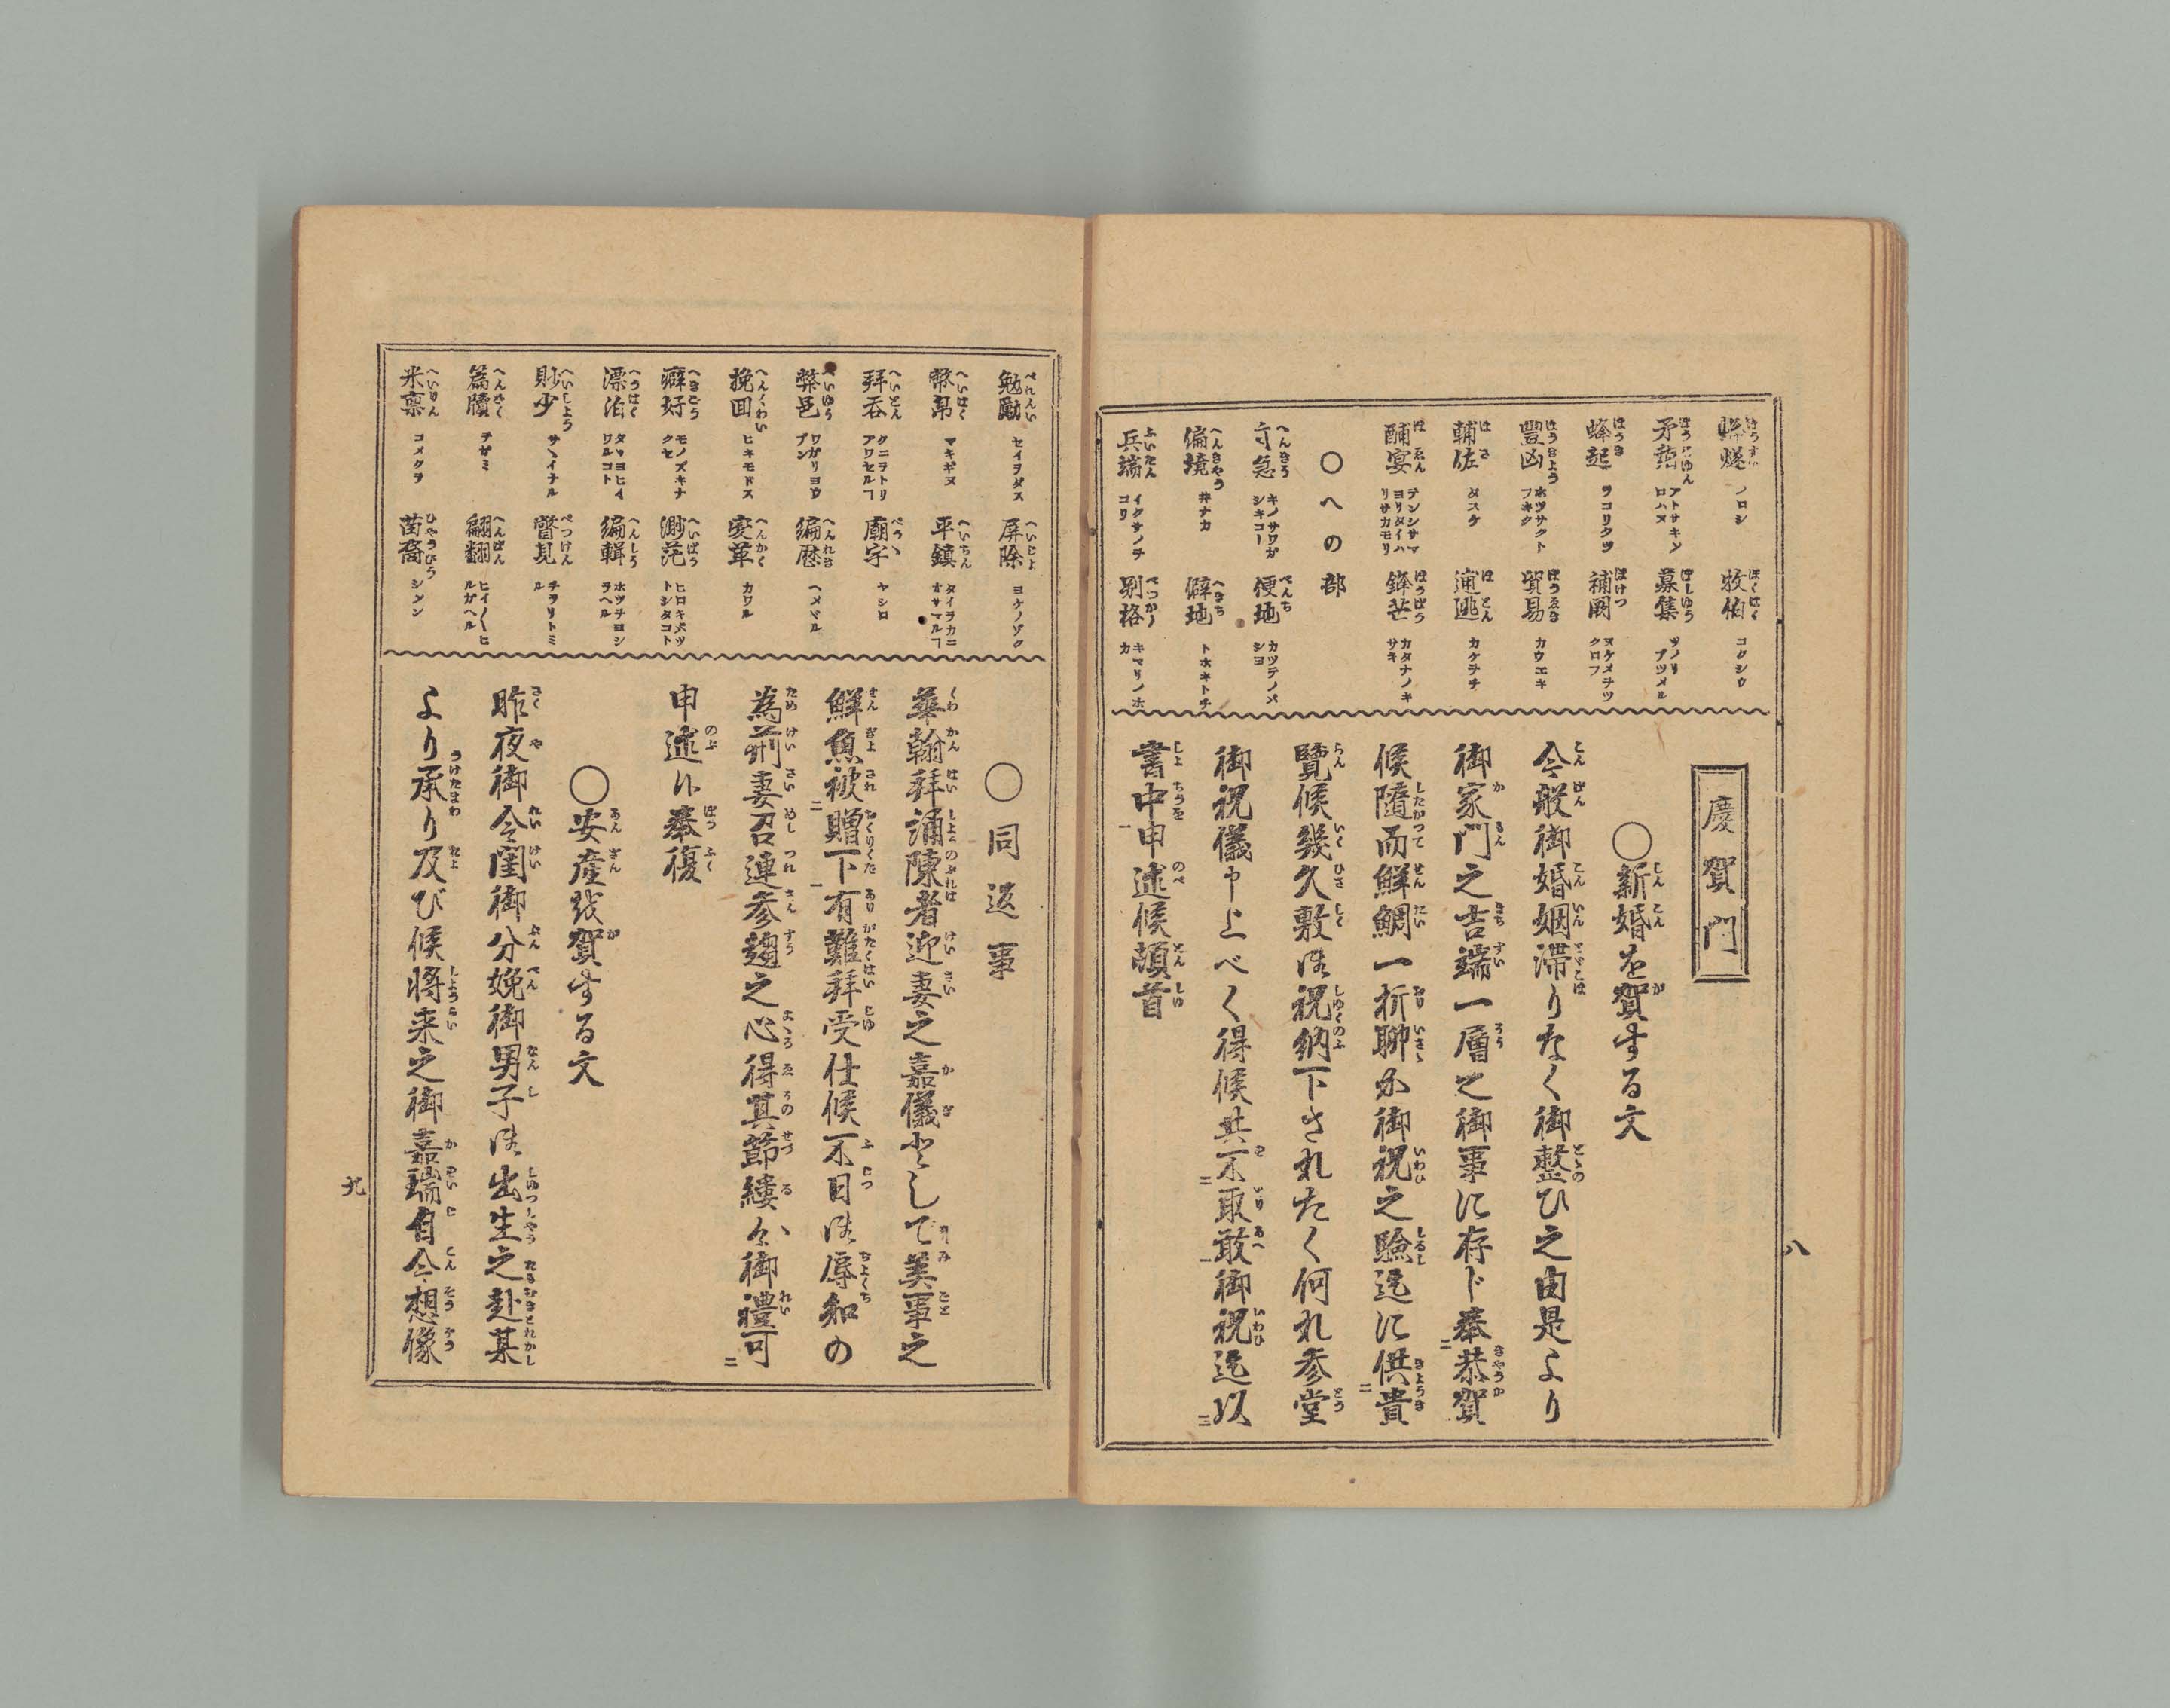 牧伯 コクシウ
矛盾 アトサキソロハヌ
募集 ツノリアツメル
蜂起 ヲコリタツ
補闕 ヌケメヲツクロフ
豐凶 ホツサクトフキク
貿易 カウエキ
輔佐 タスケ
逋逃 カケヲチ
酺宴 テンシサマヨリタイハリサカモリ
鋒芒 カタナノキサキ
〇への部
便地 カツテノメシヨ
偏境 井ナカ
僻地 トホキトチ
兵端 イクサノヲコリ
別格 キマリノホカ
慶賀門
〇新婚を賀する文
今般御婚姻滞りなく御整ひ之由是より
御家門之吉端一層之御事に存ド奉恭賀
候隨而鮮鯛一折聊か御祝之驗迄に供貴
覽候幾久敷は祝納下されたく何れ参堂
御祝儀申上べく得候共不取敢御祝迄以
書中申述候頓首
八
勉勵 セイヲダス
屏除 ヨケノゾク
幣帛 マキギヌ
平鎮 タイラカニオサマルコ
拜呑 クニヲトリアワセルコ
廟宇 ヤシロ
弊邑 ワガリヨウブン
編歴 ヘメグル
挽回 ヒキモドス
変革 カワル
癖好 モノズキナクセ
渺茫 ヒロキメツトシタコト
漂泊 タヾヨヒイワルコト
編輯 ホツヲヨシヲヘル
眇少 サヽイナル
瞥見 チヲリトミル
翩翻 ヒイ〳〵ヒルガヘル
米稟 コメクヲ
苗裔 シソン
〇同返事
華翰拜誦陳者迎妻之嘉儀として美事之
鮮魚被贈下有難拜受仕候不日は辱知の
為荊妻召連参趨之心得其節縷々御禮可
申述候奉復
〇安産を賀する文
昨夜御令閨御分娩御男子は出生之赴某
より承り及び候将来之御嘉瑞自今想像
九